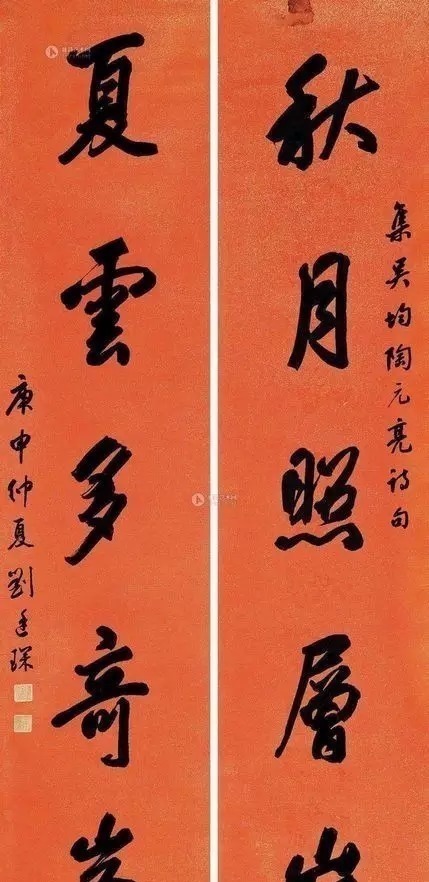 集吳均陶元亮詩句
秋月照層
夏雲多奇
庚申仲夏劉廷琛